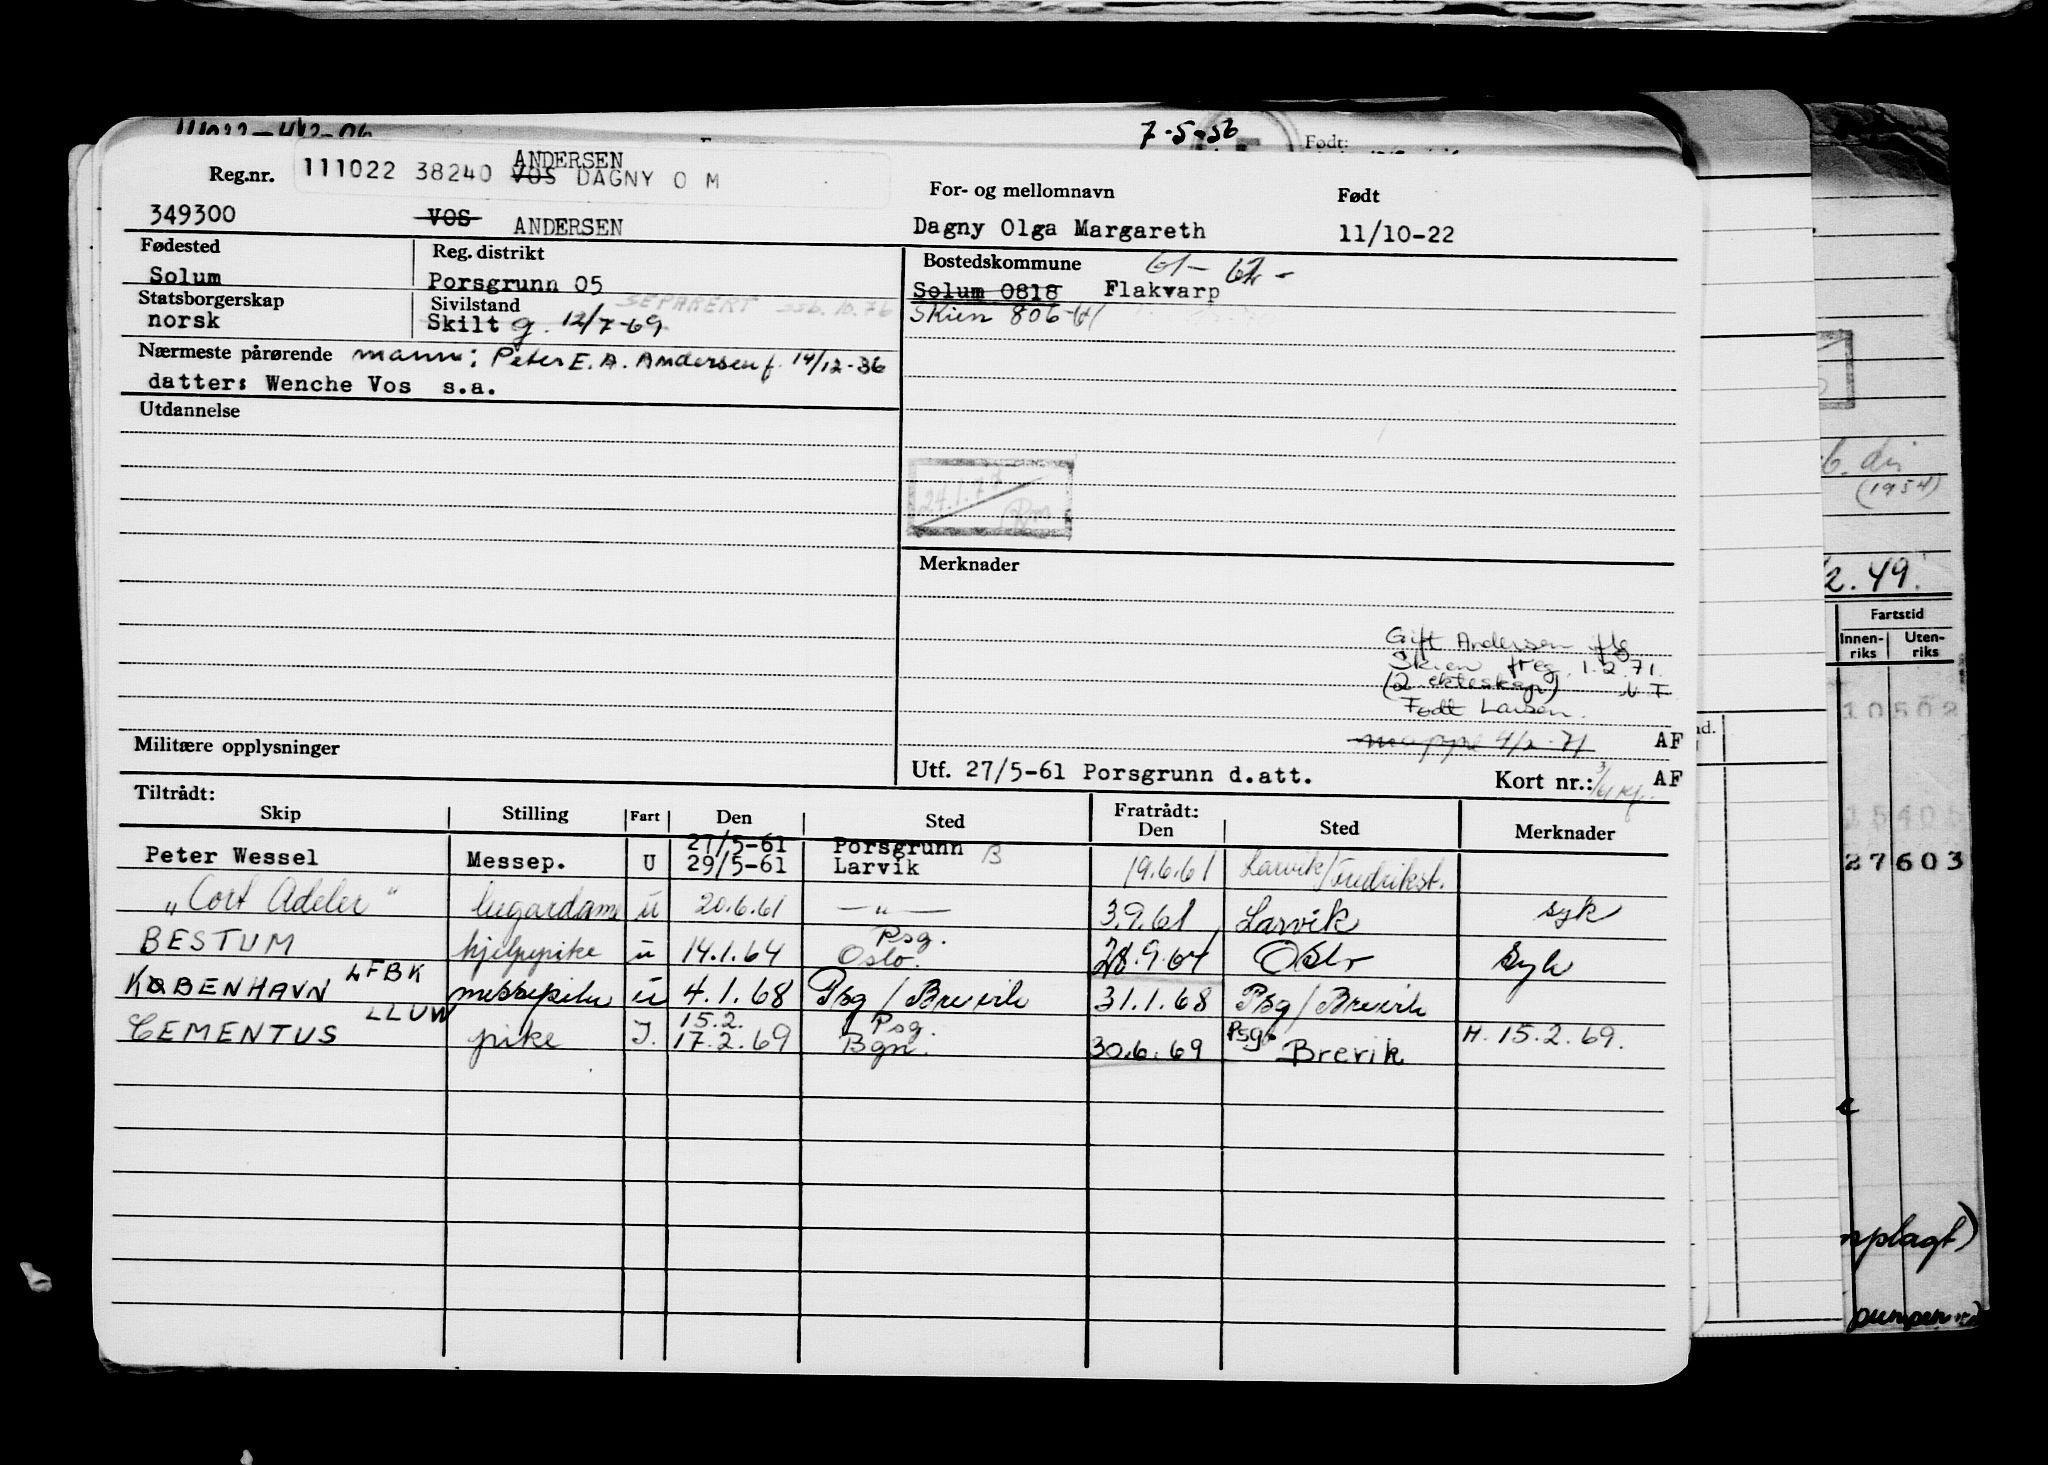 7-5-56
Født:
Reg.nr.
ANDERSEN
111022 38240 VOS DAGNY O M
For- og mellomnavn
Født
349300
VOS ANDERSEN
Dagny Olga Margareth
11/10-22
Fødested
Reg. distrikt
Bostedskommune
61-
Solum
Porsgrunn 05
Solum 0818 Flakvarp
Statsborgerskap
Sivilstand
SEPARERT
norsk
Skilt g. 12/7-69
Skien 806
Nærmeste pårørende mann: Peter E. A. Andersen f. 14/12-36
datter: Wenche Vos s.a.
Utdannelse
24.1.77
Merknader
Gift Andersen iflg
Skien freg. 1.2.71.
(2 ekteskap)
Født Larsen.
mappe 4/2-71 AF
Militære opplysninger
Utf. 27/5-61 Porsgrunn d.att.
Kort nr.: AF
Tiltrådt:
Fratrådt:
Skip Stilling Fart Den Sted Den Sted Merknader
27/5-61 Porsgrunn
Peter Wessel Messep. U 29/5-61 Larvik B 19.6.61 Larvik/Fredrikst.
"Cort Adeler" lugardame u 20.6.61 —"— 3.9.61 Larvik syk
Psg.
BESTUM hjelpepike u 14.1.64 Oslo. 28.9.64 Oslo syk
KØBENHAVN LFBK messepike u 4.1.68 Psg/Brevik 31.1.68 Psg/Brevik
LLUW 15.2. Psg. Psg.
CEMENTUS pike I. 17.2.69 Bgn. 30.6.69 Brevik H. 15.2.69.
(1954)
2.49.
Fartstid
Innen-
riks
Uten-
riks
10502
25405
27603